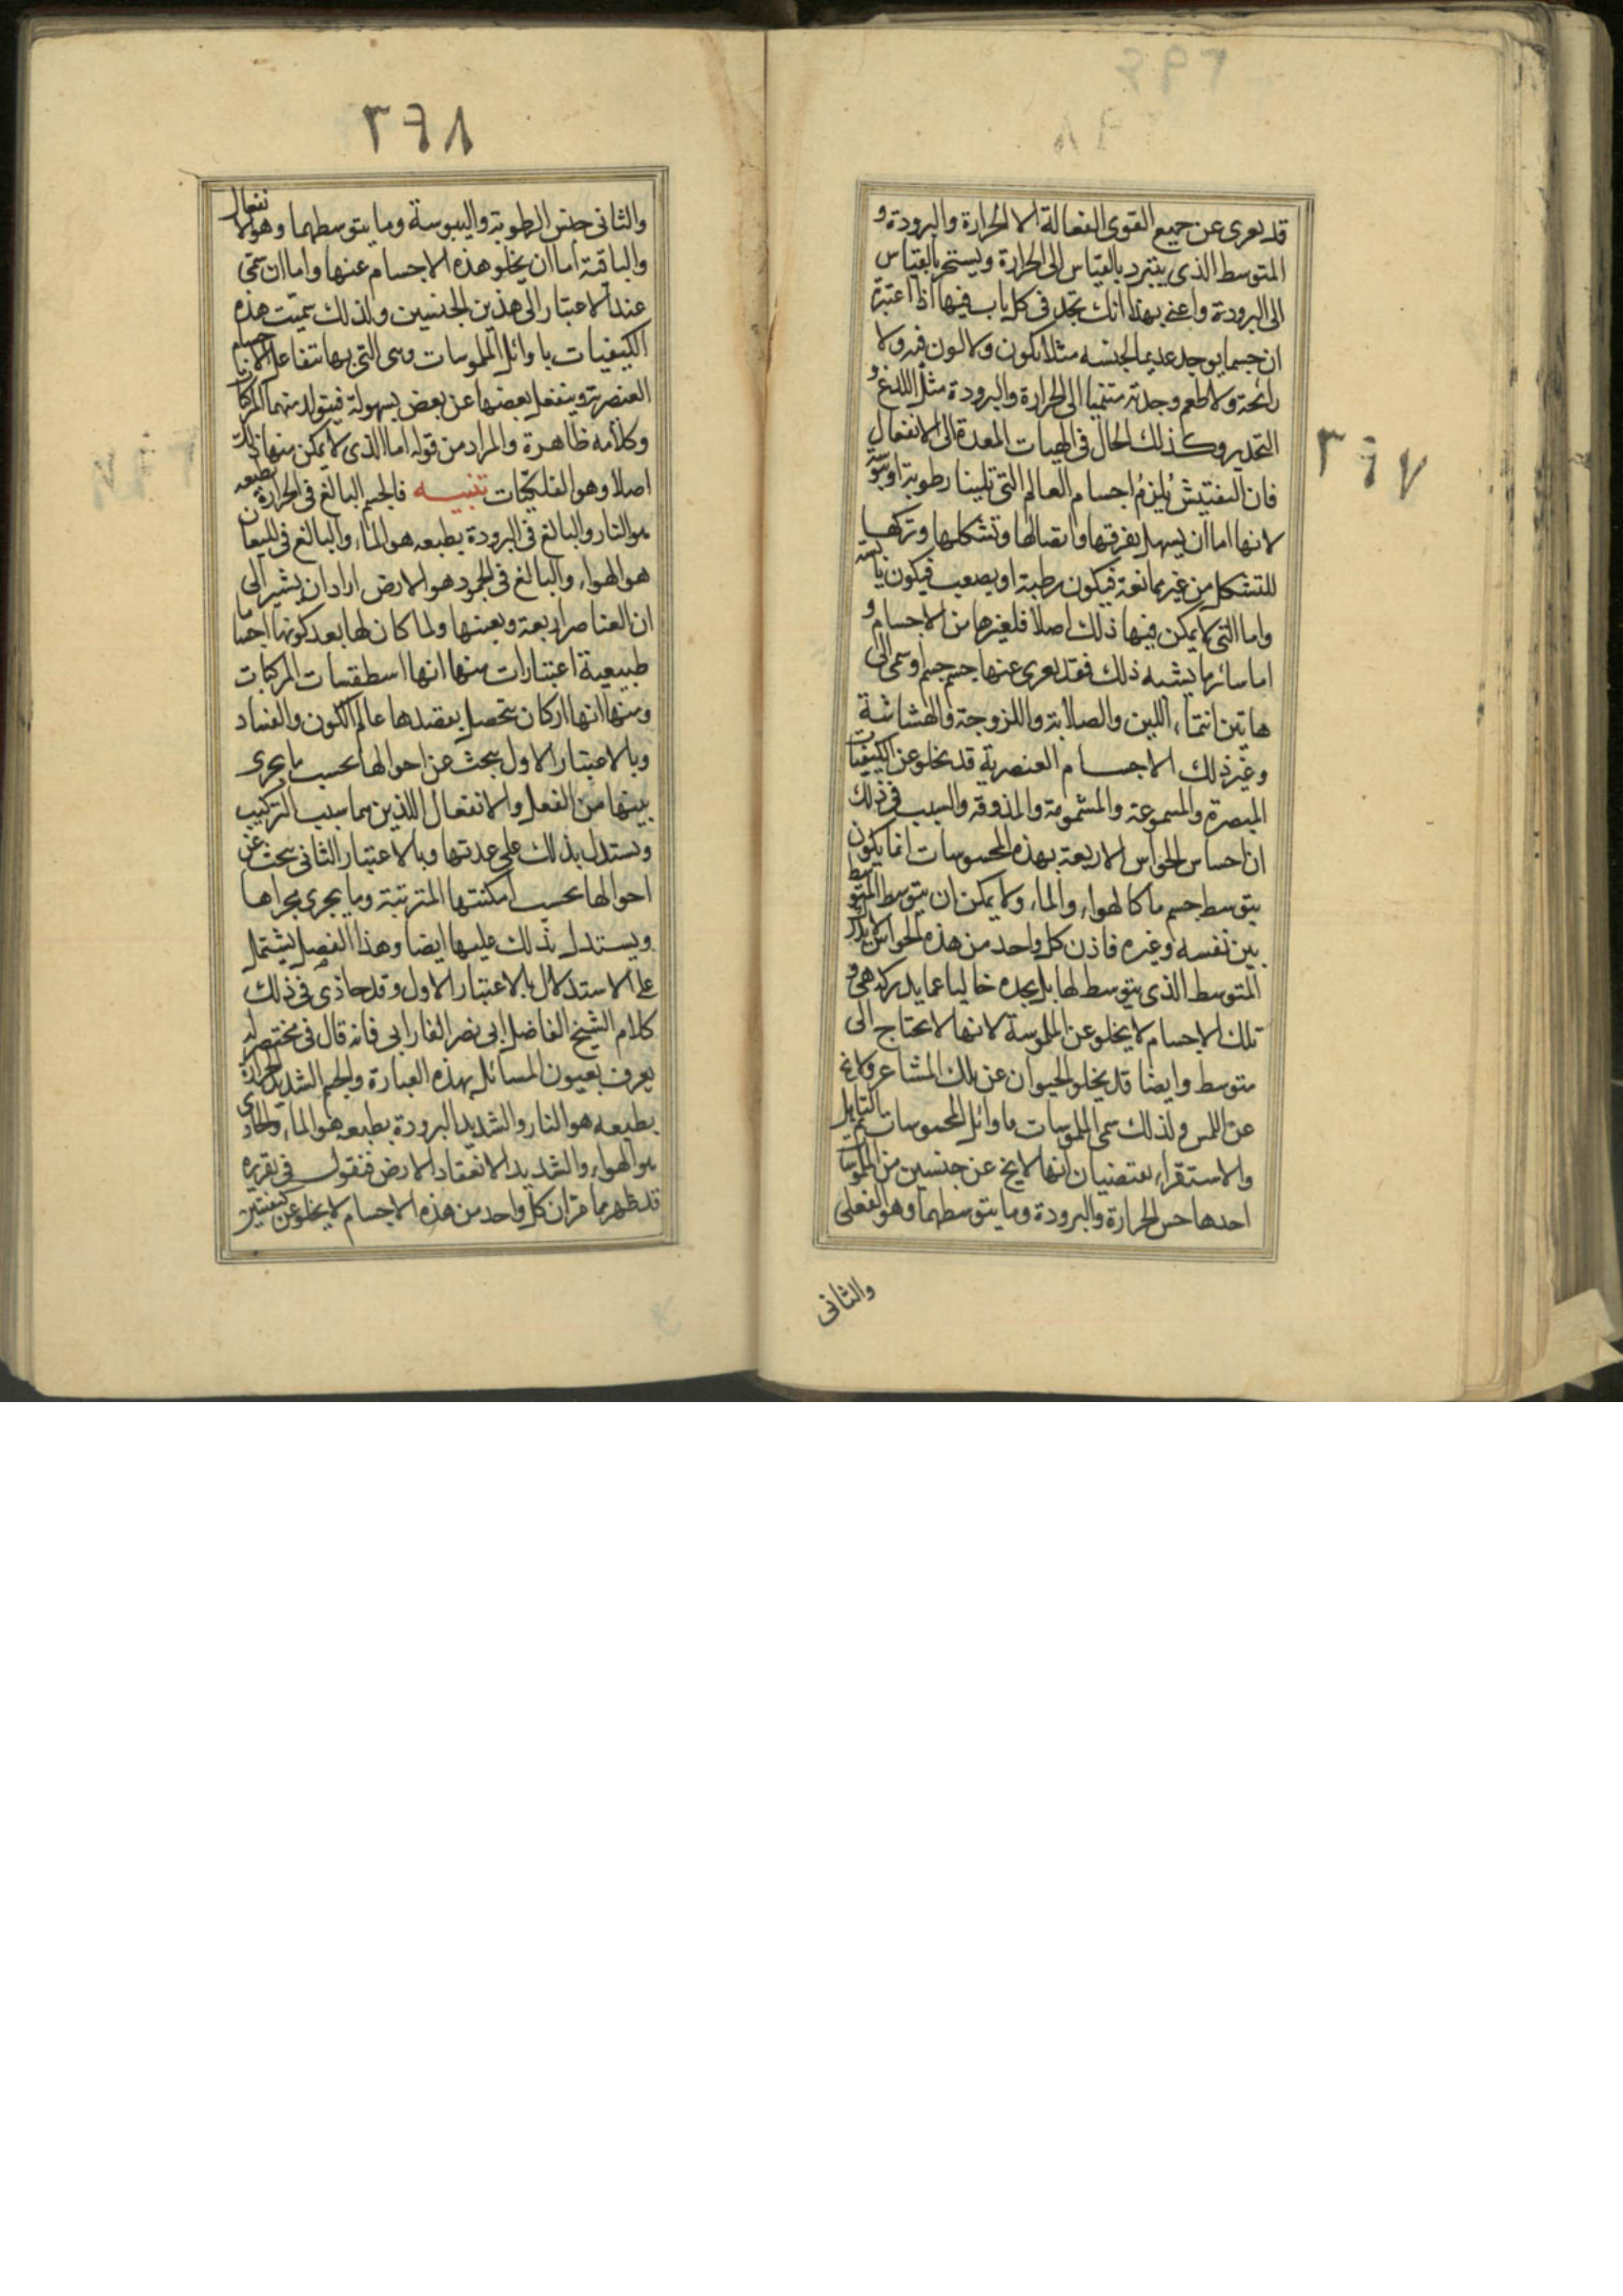 ٣٦٧
قد يعرى عن جميع القوى الفعالة الا الحرارة والبرودة و
المتوسط الذى يتبرد بالقياس الى الحرارة ويستحر بالقياس
الى البرودة واعنى بهذا انك تجد فى كل باب فيها اذا اعتبرته
ان جسما يوجد عديما لجنسه مثلا يكون ولا لون فيه ولا
رائحة ولا طعم وجدته منتميا الى الحرارة والبرودة مثل اللذع و
التخدير وكذلك الحال فى الهيات المعدة الى الانفعال
فان التفتيش يلزم اجسام العالم التى تلينا رطوبة او يبوسة
لانها اما ان يسهل تفرقها واتصالها وتشكلها وتركها
للتشكل من غير ممانعة فيكون رطبة او يصعب فيكون يابسة
واما التى لا يمكن فيها ذلك اصلا فلغيرها من الاجسام و
اما سائر ما يشبه ذلك فقد يعرى عنها جسم جسم وتمى الى
هاتين انتماء اللين والصلابة واللزوجة والهشاشة
وغير ذلك الاجسام العنصرية قد يخلو عن الكيفيات
المبصرة والمسموعة والمشمومة والمذوقة والسبب فى ذلك
ان احساس الحواس الاربعة بهذه المحسوسات انما يكون
بتوسط جسم ما كالهواء والماء ولا يمكن ان يتوسط المتوسط
بين نفسه وغيره فاذن كل واحد من هذه الحواس لا يدرك
المتوسط الذى يتوسط لها بل يجده خاليا عما يدركه هى و
تلك الاجسام لا يخلو عن الملموسة لانها لا يحتاج الى
متوسط وايضا قد يخلو الحيوان عن تلك المشاعر ولا يخ
عن اللمس ولذلك سمى الملموسات باوائل المحسوسات ثم التامل
والاستقراء يقتضيان انها لا يخ عن جنسين من الملموسات
احدها جنس الحرارة والبرودة وما يتوسطهما وهو الفعلى
والثانى
٣٦٨
والثانى جنس الرطوبة واليبوسة وما يتوسطهما وهو الانفعال
والباقية اما ان يخلو هذه الاجسام عنها واما ان تمى
عند الاعتبار الى هذين الجنسين ولذلك سميت هذه
الكيفيات باوائل الملموسات وهى التى بها يتفاعل الاجسام
العنصرية وينفعل بعضها عن بعض بسهولة فيتولد منهما المركبات
وكلامه ظاهرة والمراد من قوله اما الذى لا يمكن منها ذلك
اصلا وهو الفلكيات تنبيه فالجسم البالغ فى الحرارة بطبعه
هو النار والبالغ فى البرودة بطبعه هو الماء والبالغ فى الميعان
هو الهواء والبالغ فى الجمود هو الارض اراد ان يشير الى
ان العناصر اربعة وبعينها ولما كان لها بعد كونها اجساما
طبيعية اعتبارات منها انها اسطقسات المركبات
ومنها انها اركان يتحصل بنضدها عالم الكون والفساد
وبالاعتبار الاول يبحث عن احوالها بحسب ما يجرى
بينها من الفعل والانفعال اللذين هما سبب التركيب
ويستدل بذلك على عدتها وبالاعتبار الثانى يبحث عن
احوالها بحسب امكنتها المترتبة وما يجرى مجراها
ويستدل بذلك عليها ايضا وهذا الفصل يشتمل
على الاستدلال بالاعتبار الاول وقد حاذى فى ذلك
كلام الشيخ الفاضل ابى نصر الفارابى فانه قال فى مختصر له
يعرف بعيون المسائل بهذه العبارة والجسم الشديد الحرارة
بطبعه هو النار والشديد البرودة بطبعه هو الماء والجارى
هو الهواء والشديد الانعقاد الارض فنقول فى تقريره
قد ظهر مما مر ان كل واحد من هذه الاجسام لا يخلو عن كيفيتين